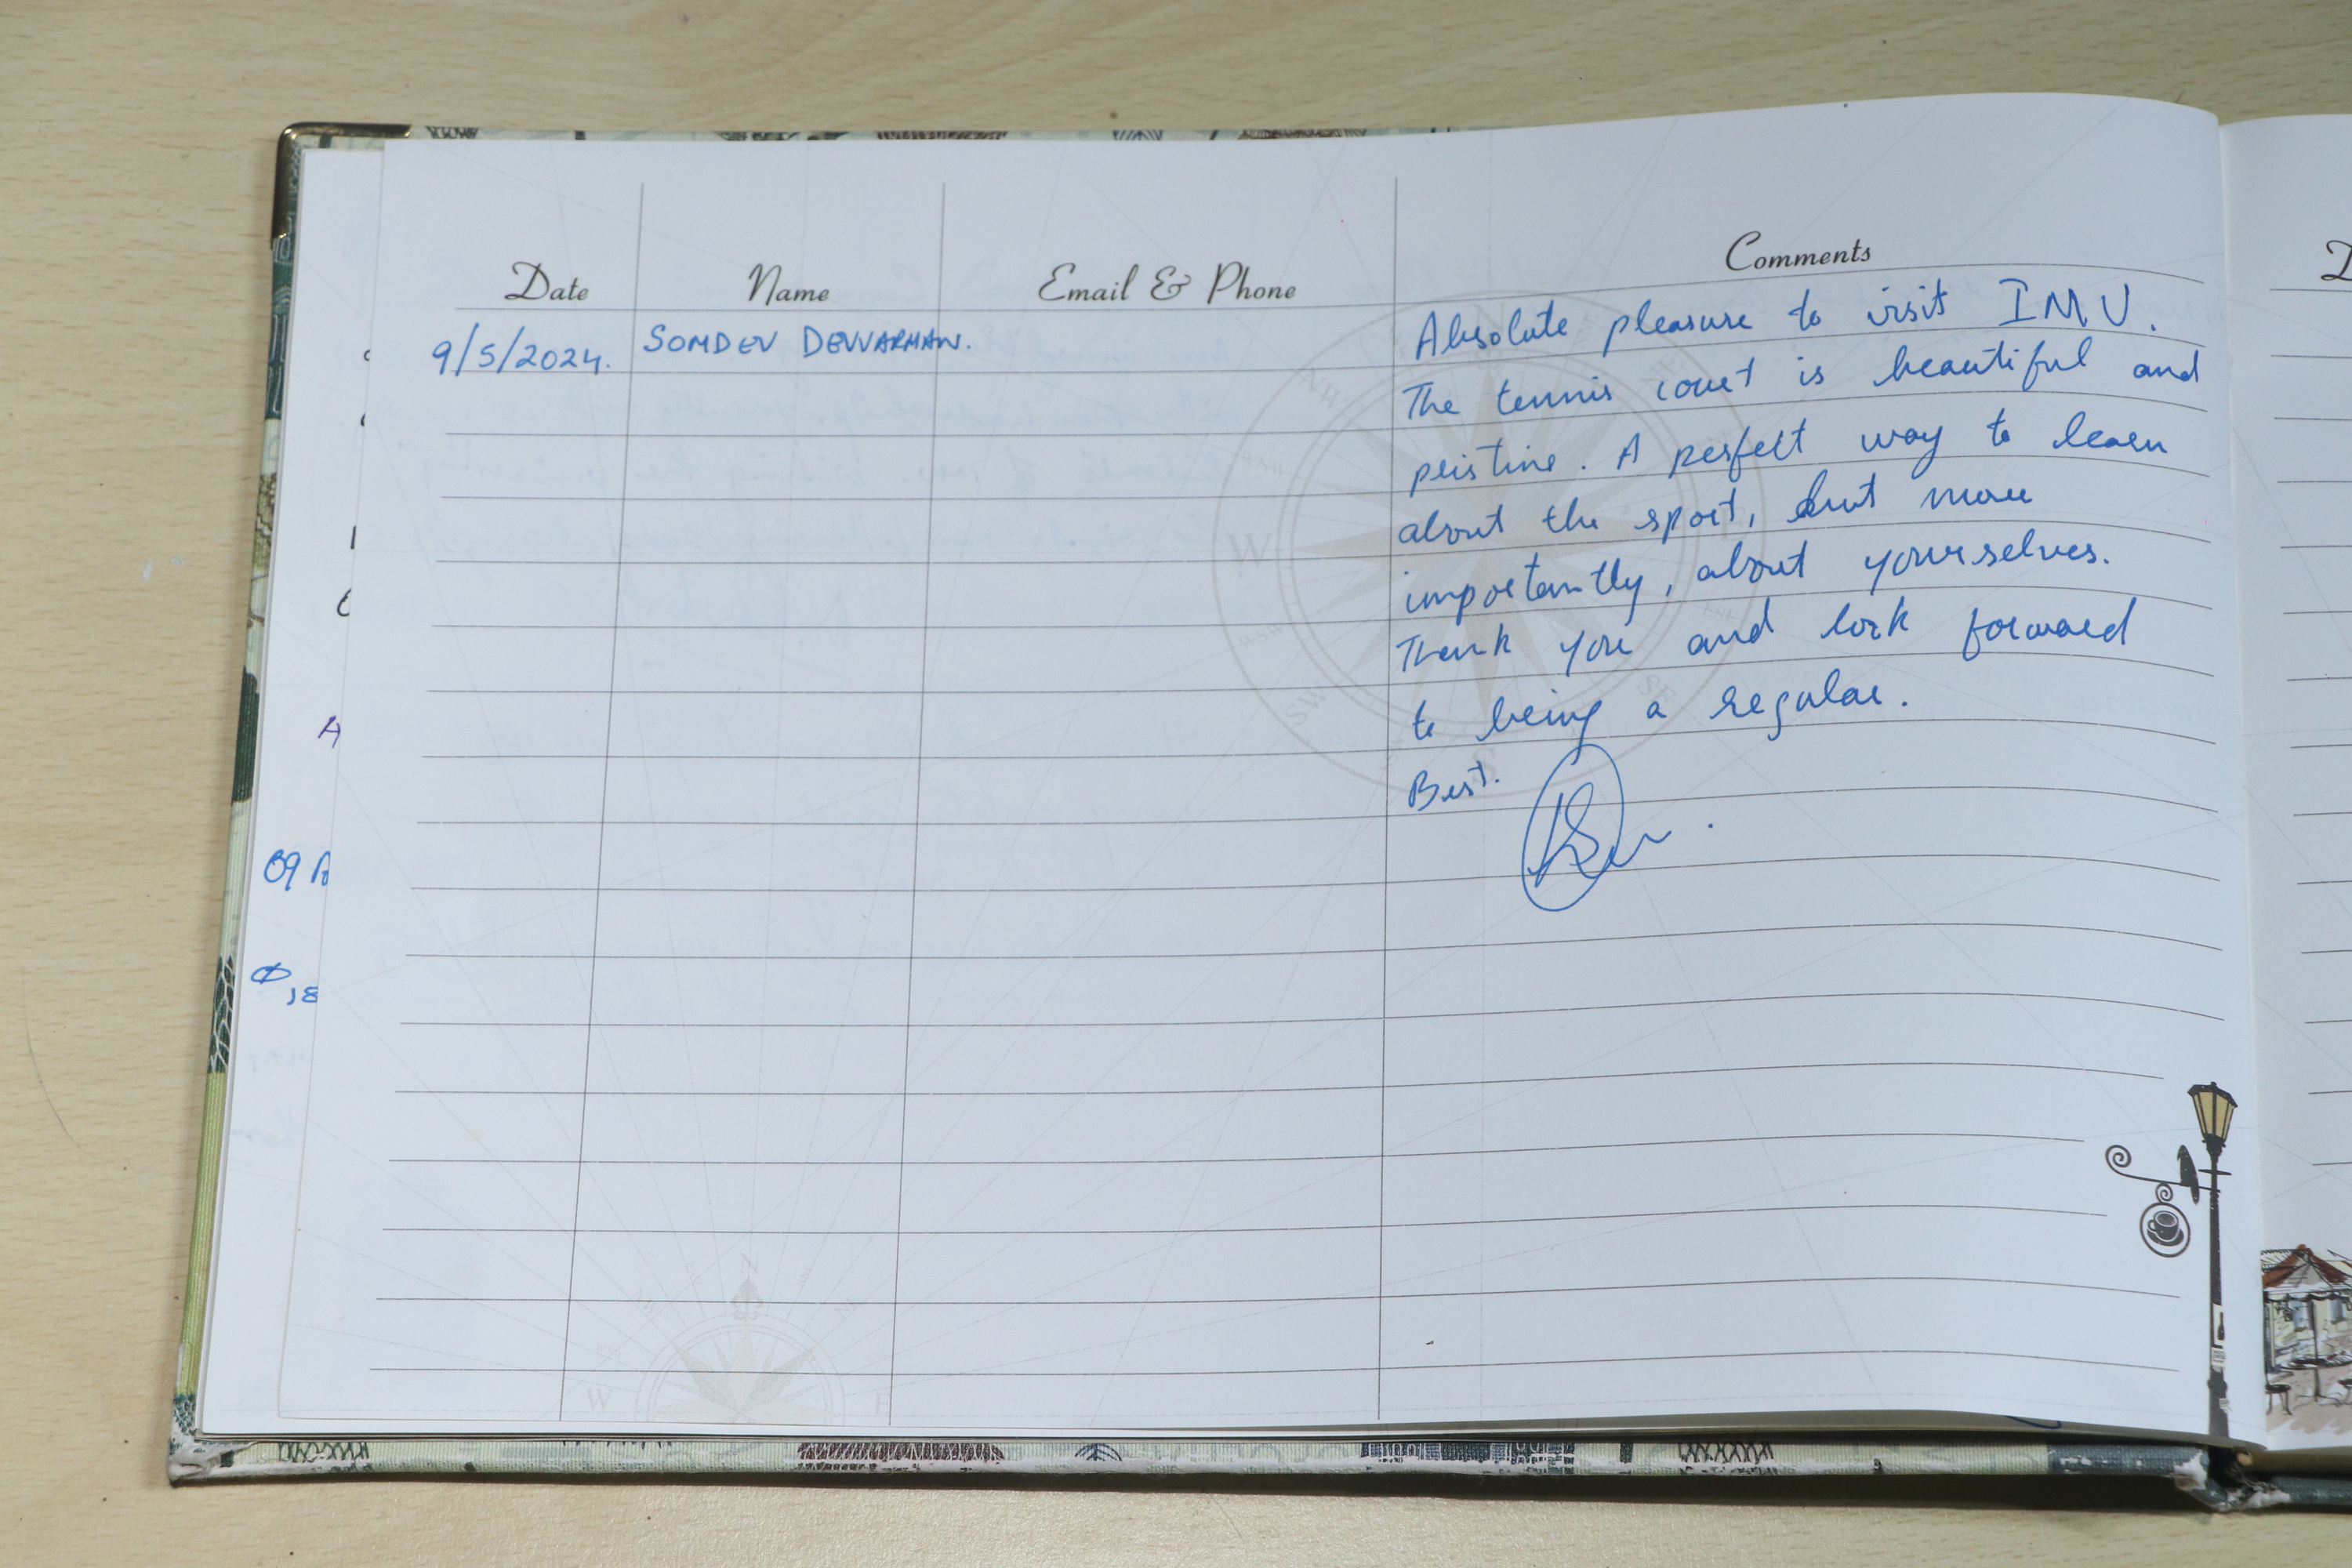 Date Name Email & Phone Comments
9/5/2024. SOMDEV DEVVARMAN.
Absolute pleasure to visit IMU.
The tennis court is beautiful and
pristine. A perfect way to learn
about the sport, but more
importantly, about yourselves.
Thank you and look forward
to being a regular.
Best.
A
09 A
W
N
E
W
S
SW
SE